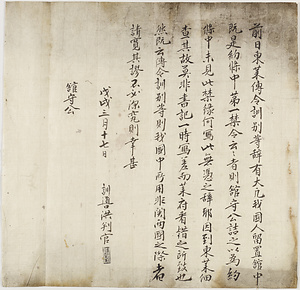 前日東萊傳令訓別等辭有大凡我國人留置館中
既是約條中第一禁令云者則館守公詰之以為約
條中未見此禁緣何寫此無憑之辭耶因到東萊細
查其故莫非書記一時寫差而萊府看措之所致也
然既云傳令訓別等則我國中所用非関両國之際者
請寬其謬不必深究則幸甚
戊戌三月十七日
訓導洪判官
館守公